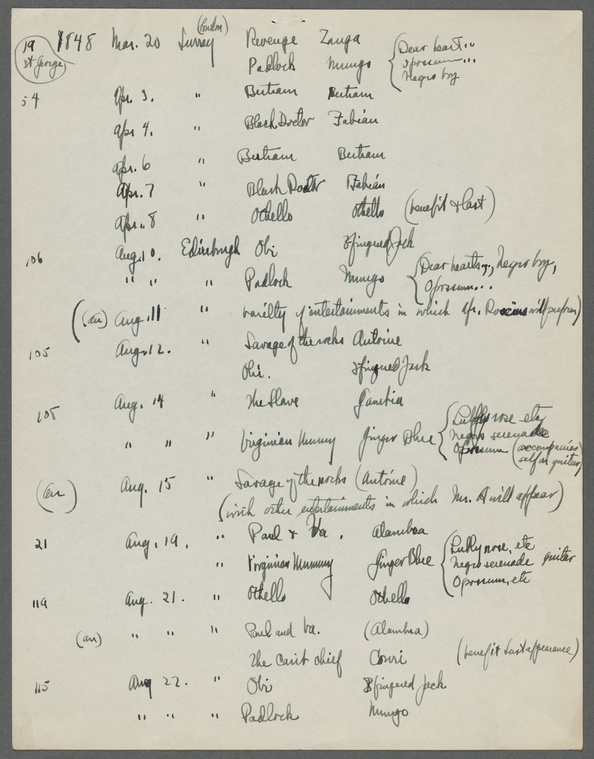 19 1848 Mar. 20 Surrey (London) Revenge Zanga
St George Padlock Mungo { Dear heart.. opossum... Negro boy
54 Apr. 3. " Bertram Bertram
Apr. 4. " Black Doctor Fabian
Apr. 6 " Bertram Bertram
Apr. 7 " Black Doctor Fabian
Apr. 8 " Othello Othello (benefit & last)
106 Aug. 10. Edinburgh Obi 3 fingred Jack
" " " Padlock Mungo { Dear hearts, Negro boy, Opossum...
(an) Aug. 11 " variety of entertainments in which Afr. Roscius will perform)
105 Aug. 12. " Savage of the rocks Antoine
Obi. 3 fingred Jack
108 Aug. 14 " The Slave Gambia
" " " Virginian Mummy Ginger Blue { Lubly rose etc Negro serenade Opossum (accompanies self on guitar)
(an) Aug. 15 " Savage of the rocks (Antoine)
(with other entertainments in which Mr. A will appear)
21 Aug. 19. " Paul & Va. Alambra
" Virginian Mummy Ginger Blue { Lubly rose, etc Negro serenade guitar Opossum, etc
119 Aug. 21. " Othello Othello
(an) " " " Paul and Va. (Alambra)
The Carib chief Omri (benefit & last appearance)
115 Aug 22. " Obi 3 fingred Jack
" " " Padlock Mungo